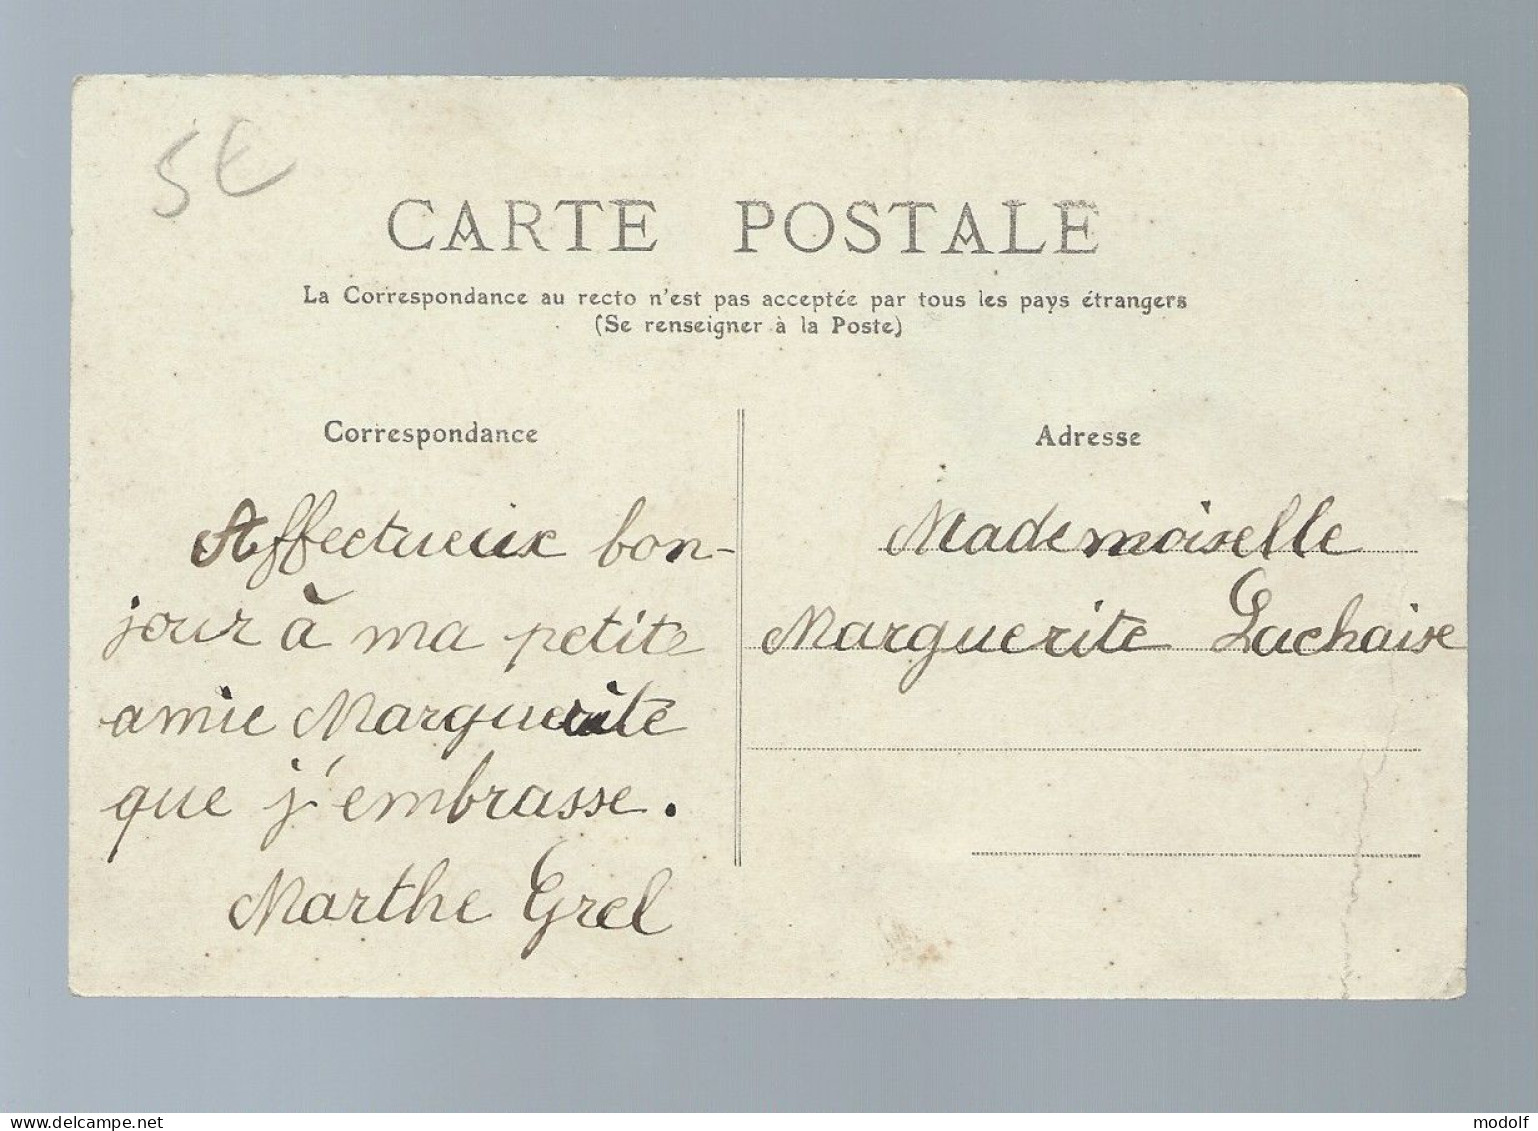 5€
CARTE POSTALE
La Correspondance au recto n'est pas acceptée par tous les pays étrangers
(Se renseigner à la Poste)
Correspondance
Affectueux bon-
jour à ma petite
amie Marguerite
que j'embrasse.
Marthe Grel
Adresse
Mademoiselle
Marguerite Lachaise
www.delcampe.net
modolf